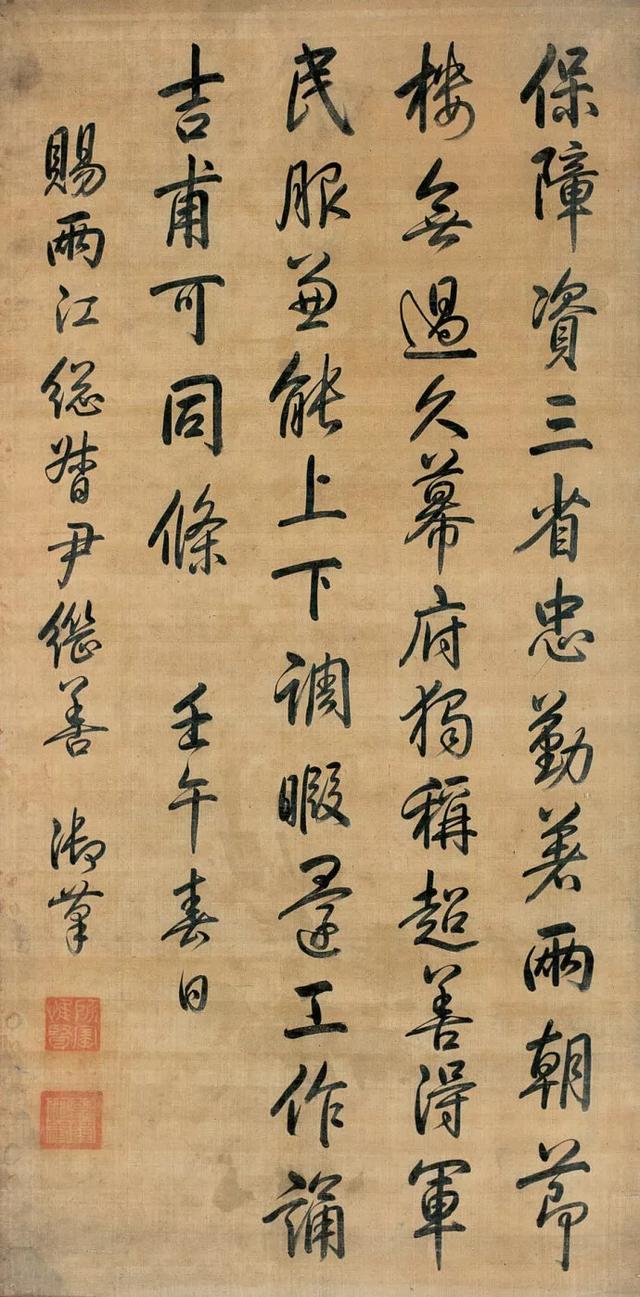 保障資三省忠勤著兩朝節
樓無過久幕府獨稱超善得軍
民服兼能上下調暇還工作誦
吉甫可同條 壬午春日
賜兩江總督尹繼善 御筆
所寶惟賢
乾隆御筆